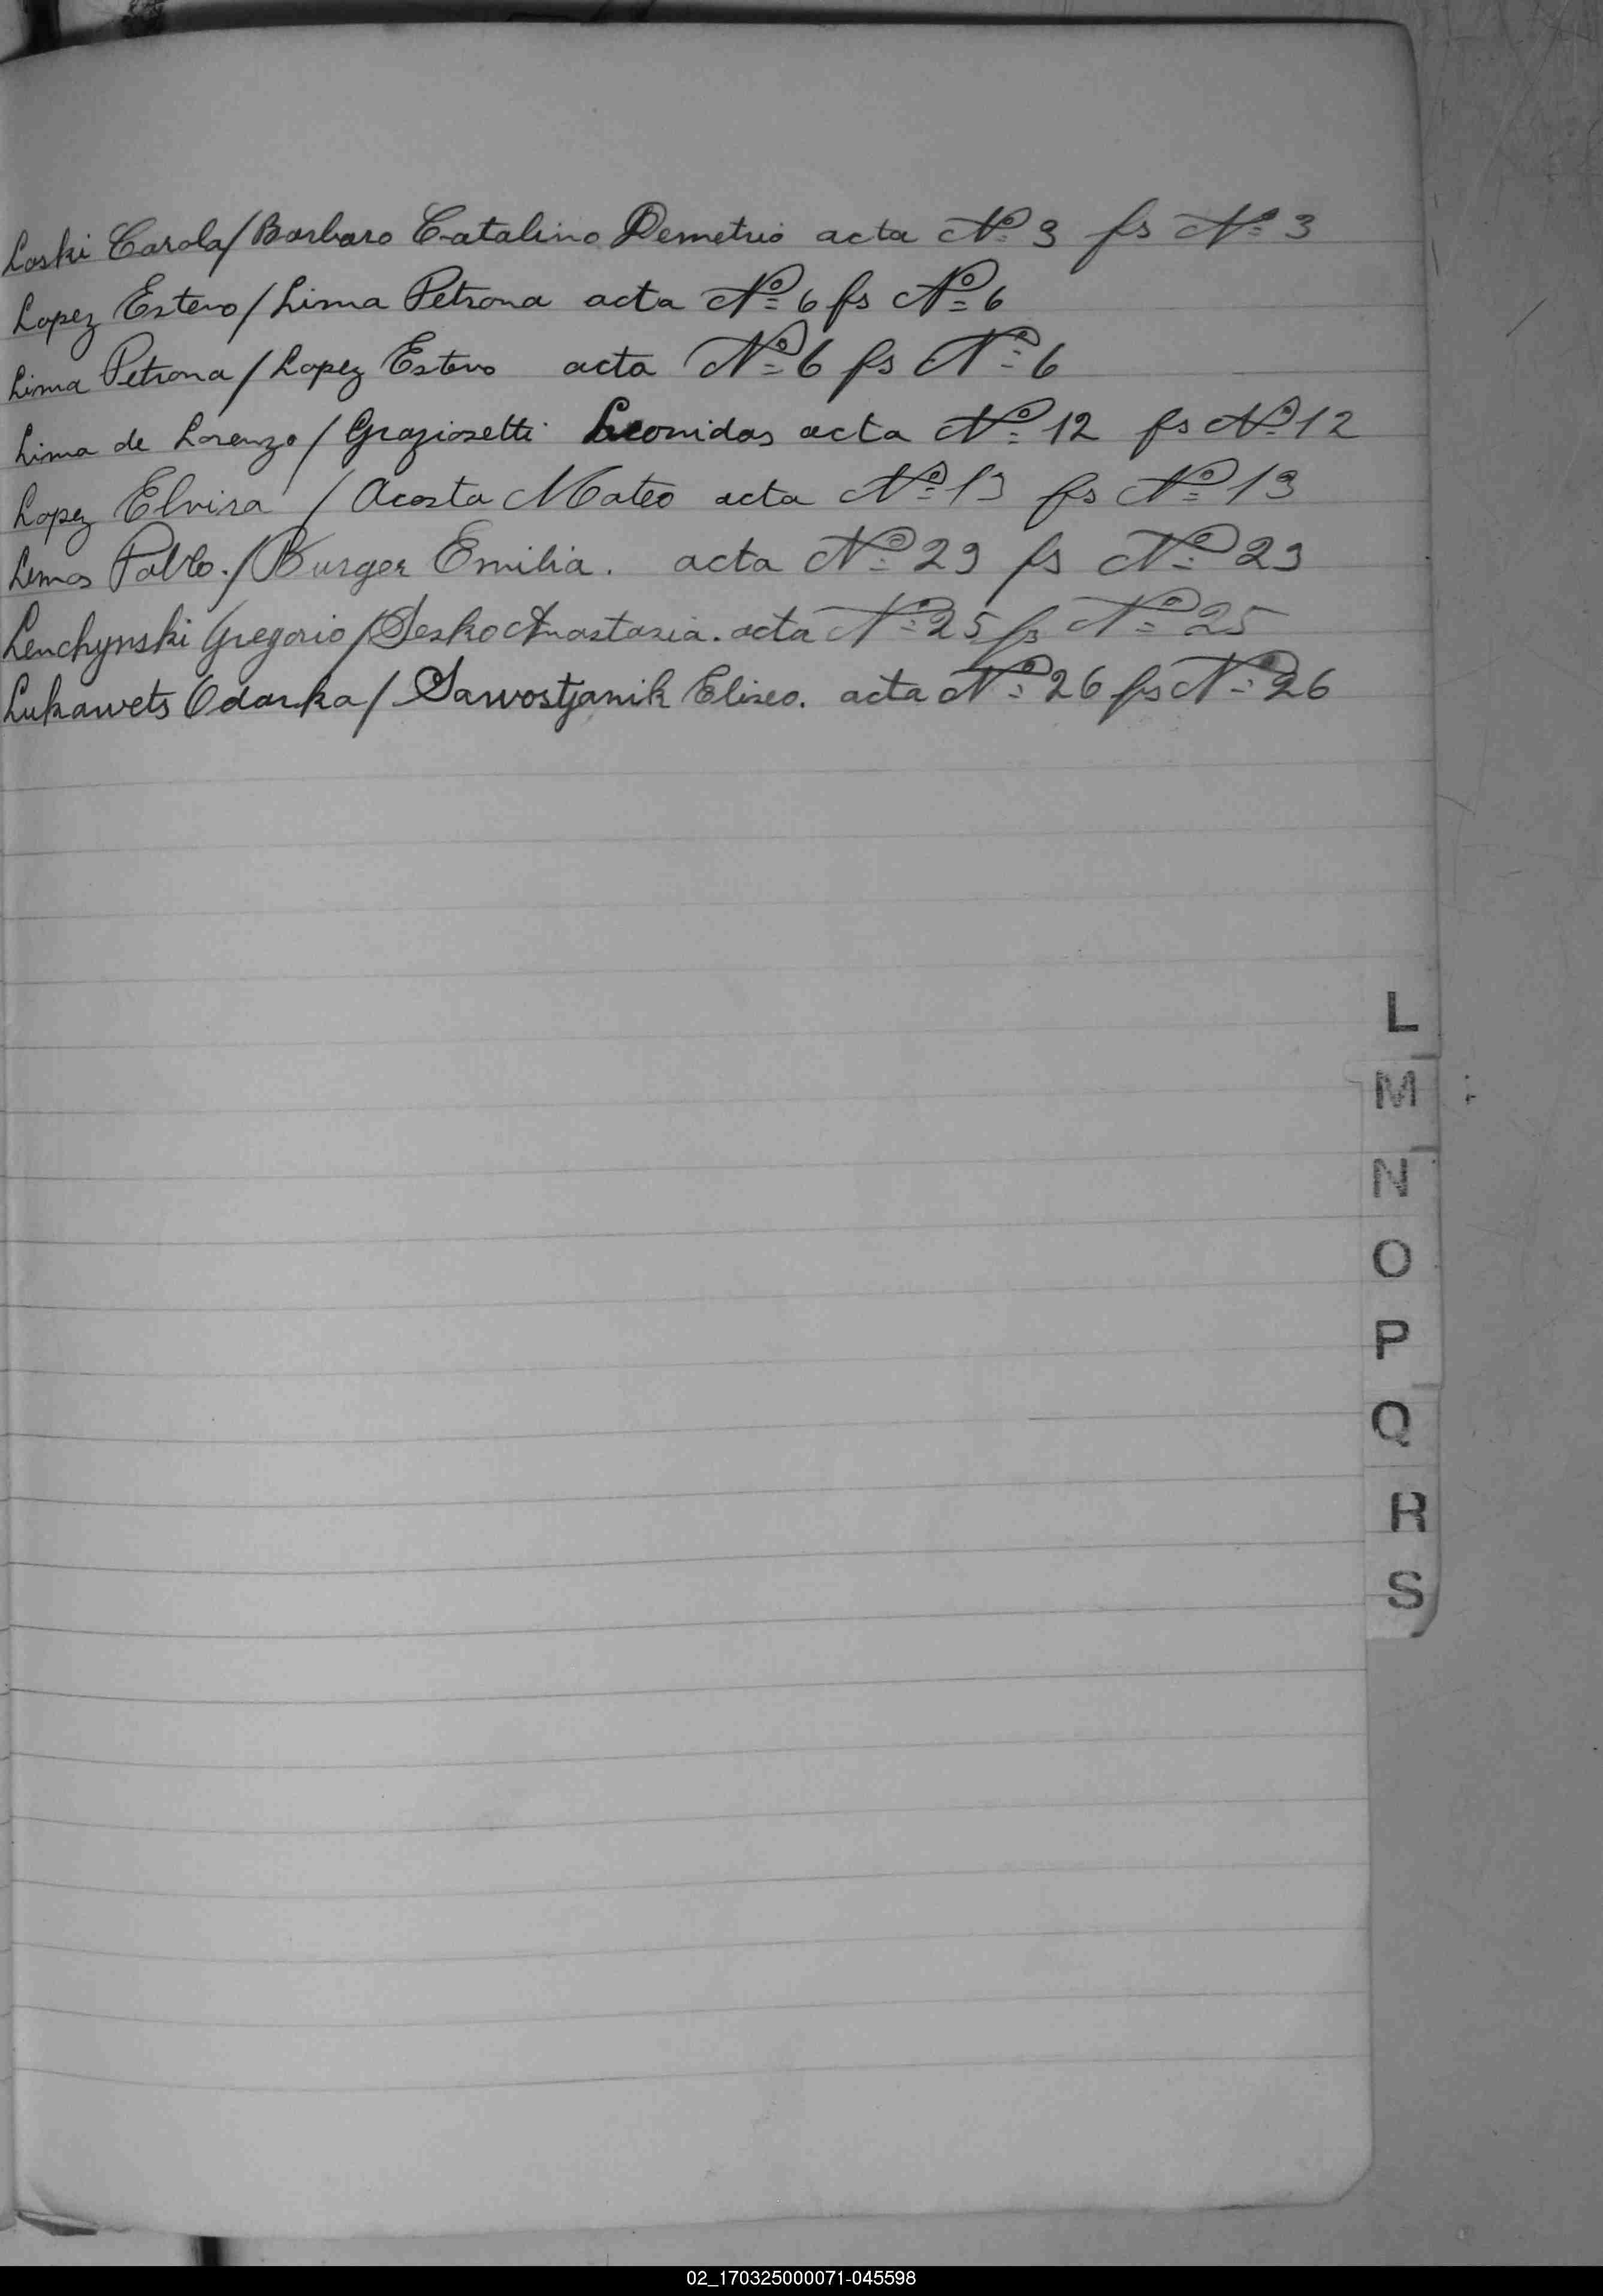 Loski Carola/Barbaro Catalino Demetrio acta Nº 3 fs Nº 3
Lopez Estevo/Lima Petrona acta Nº 6 fs Nº 6
Lima Petrona/Lopez Estevo acta Nº 6 fs Nº 6
Lima de Lorenzo/Graziosetti Leonidas acta Nº 12 fs Nº 12
Lopez Elvira/Acosta Mateo acta Nº 13 fs Nº 13
Lemos Pablo./Burger Emilia. acta Nº 23 fs Nº 23
Lenchynski Gregorio/Sesko Anastasia. acta Nº 25 fs Nº 25
Lukawets Odarka/Sawostjanik Eliseo. acta Nº 26 fs Nº 26
L
M
N
O
P
Q
R
S
02_170325000071-045598